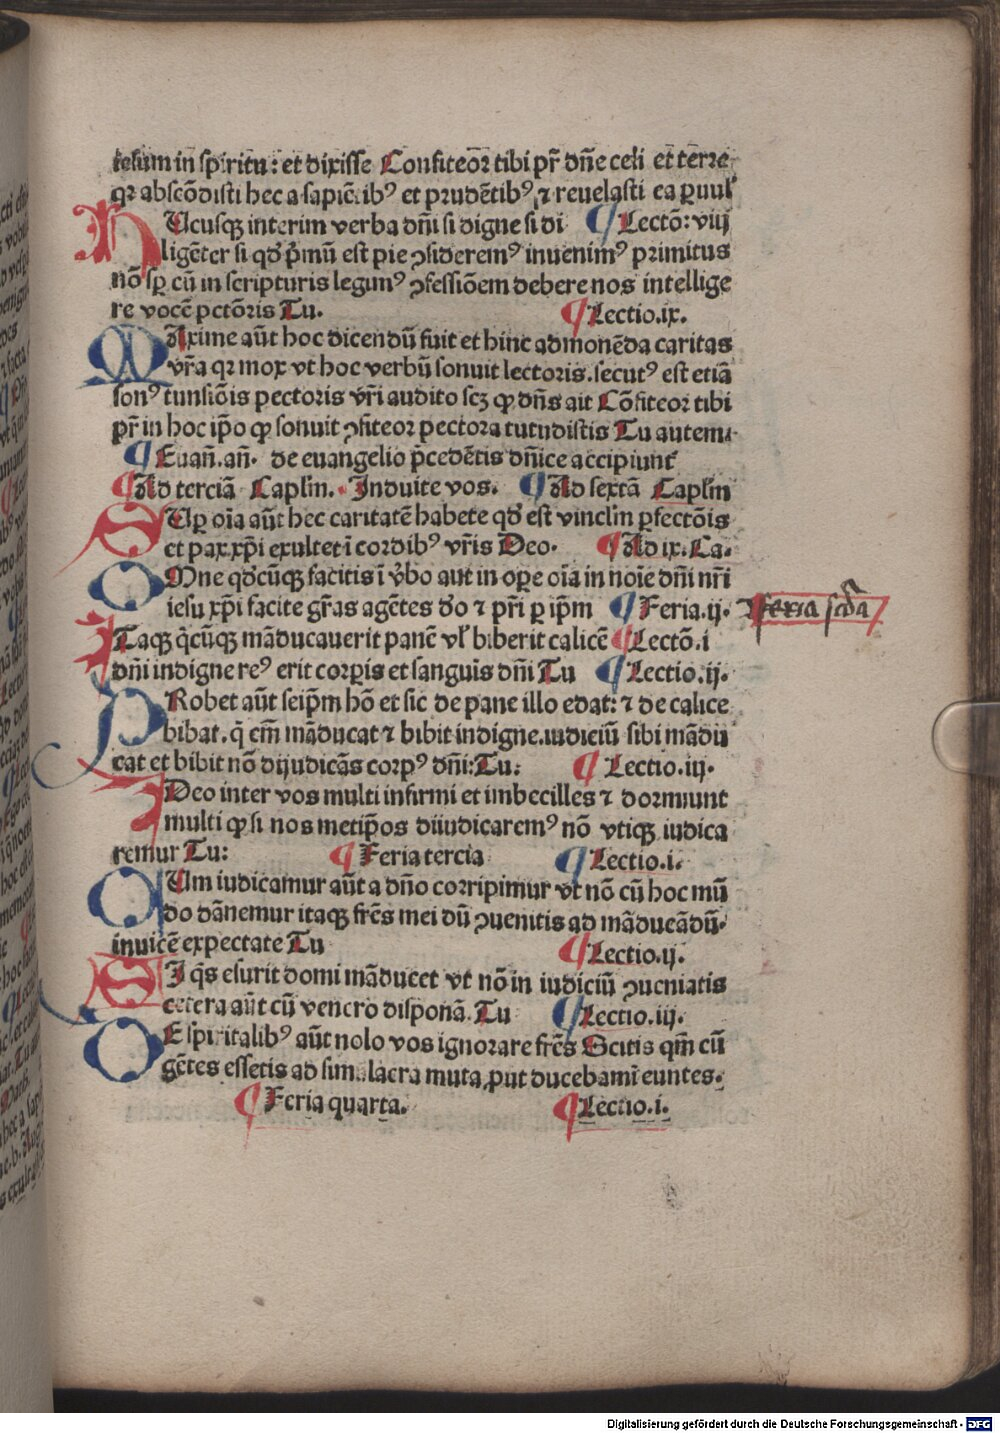 iesum in spiritu: et dixisse Confiteor tibi pr̄ dn̄e celi et terre
qr abscōdisti hec a sapiētibꝰ et prudētibꝰ ⁊ reuelasti ea ꝑuulˀ
HUcusqꝫ interim verba dn̄i si digne si di ¶ Lectō: viij
ligēter si qd̄ p̄mū est pie ꝯsideremꝰ inuenimꝰ primitus
nō sꝑ cū in scripturis legimꝰ ꝯfessiōem debere nos intellige
re vocē pctōris Tu. ¶ Lectio.ix.
MAxime aūt hoc dicendū fuit et hinc admonēda caritas
vr̄a qr mox vt hoc verbū sonuit lectoris.secutꝰ est etiā
sonꝰ tunsiōis pectoris vr̄i audito scꝫ ꝙ dn̄s ait Cōfiteor tibi
pr̄ in hoc ip̄o ꝙ sonuit ꝯfiteor pectora tutudistis Tu autem.
¶ Euan̄.an̄. de euangelio p̄cedētis dn̄ice accipiunt̄
¶ Ad terciā Caplm̄. Induite vos. ¶ Ad sextā Caplm̄
SUꝑ oīa aūt hec caritatē habete qd̄ est vinclm̄ ꝑfectōis
et pax xp̄i exultet ī cordibꝰ vr̄is Deo. ¶ Ad ix. Ca.
OMne qd̄cūqꝫ facitis ī v̄bo aut in oꝑe oīa in noīe dn̄i nr̄i
iesu xp̄i facite gr̄as agētes d̄o ⁊ pr̄i ꝑ ip̄m ¶ Feria.ij.
feria scd̄a
ITaqꝫ q̇cūqꝫ māducauerit panē vl̄ biberit calicē ¶ Lectō.i
dn̄i indigne reꝰ erit corꝑis et sanguis dn̄i Tu ¶ Lectio.ij.
PRobet aūt seip̄m hō et sic de pane illo edat: ⁊ de calice
bibat. q̇ em̄ māducat ⁊ bibit indigne.iudiciū sibi mādu
cat et bibit nō dijudicās corpꝰ dn̄i: Tu: ¶ Lectio.iij.
IDeo inter vos multi infirmi et imbecilles ⁊ dormiunt
multi ꝙ si nos metip̄os diiudicaremꝰ nō vtiqꝫ iudica
remur Tu: ¶ Feria tercia ¶ Lectio.i.
CUm iudicamur aūt a dn̄o corripimur vt nō cū hoc mū
do dānemur itaqꝫ frēs mei dū ꝯuenitis ad māducādū.
inuicē expectate Tu ¶ Lectio.ij.
SI q̇s esurit domi māducet vt nō in iudiciū ꝯueniatis
cetera aūt cū venero disponā. Tu ¶ Lectio.iij.
DE spiritalibꝰ aūt nolo vos ignorare frēs Scitis qm̄ cū
gētes essetis ad simulacra muta ꝓut ducebami euntes.
¶ Feria quarta. ¶ Lectio.i.
Digitalisierung gefördert durch die Deutsche Forschungsgemeinschaft - DFG